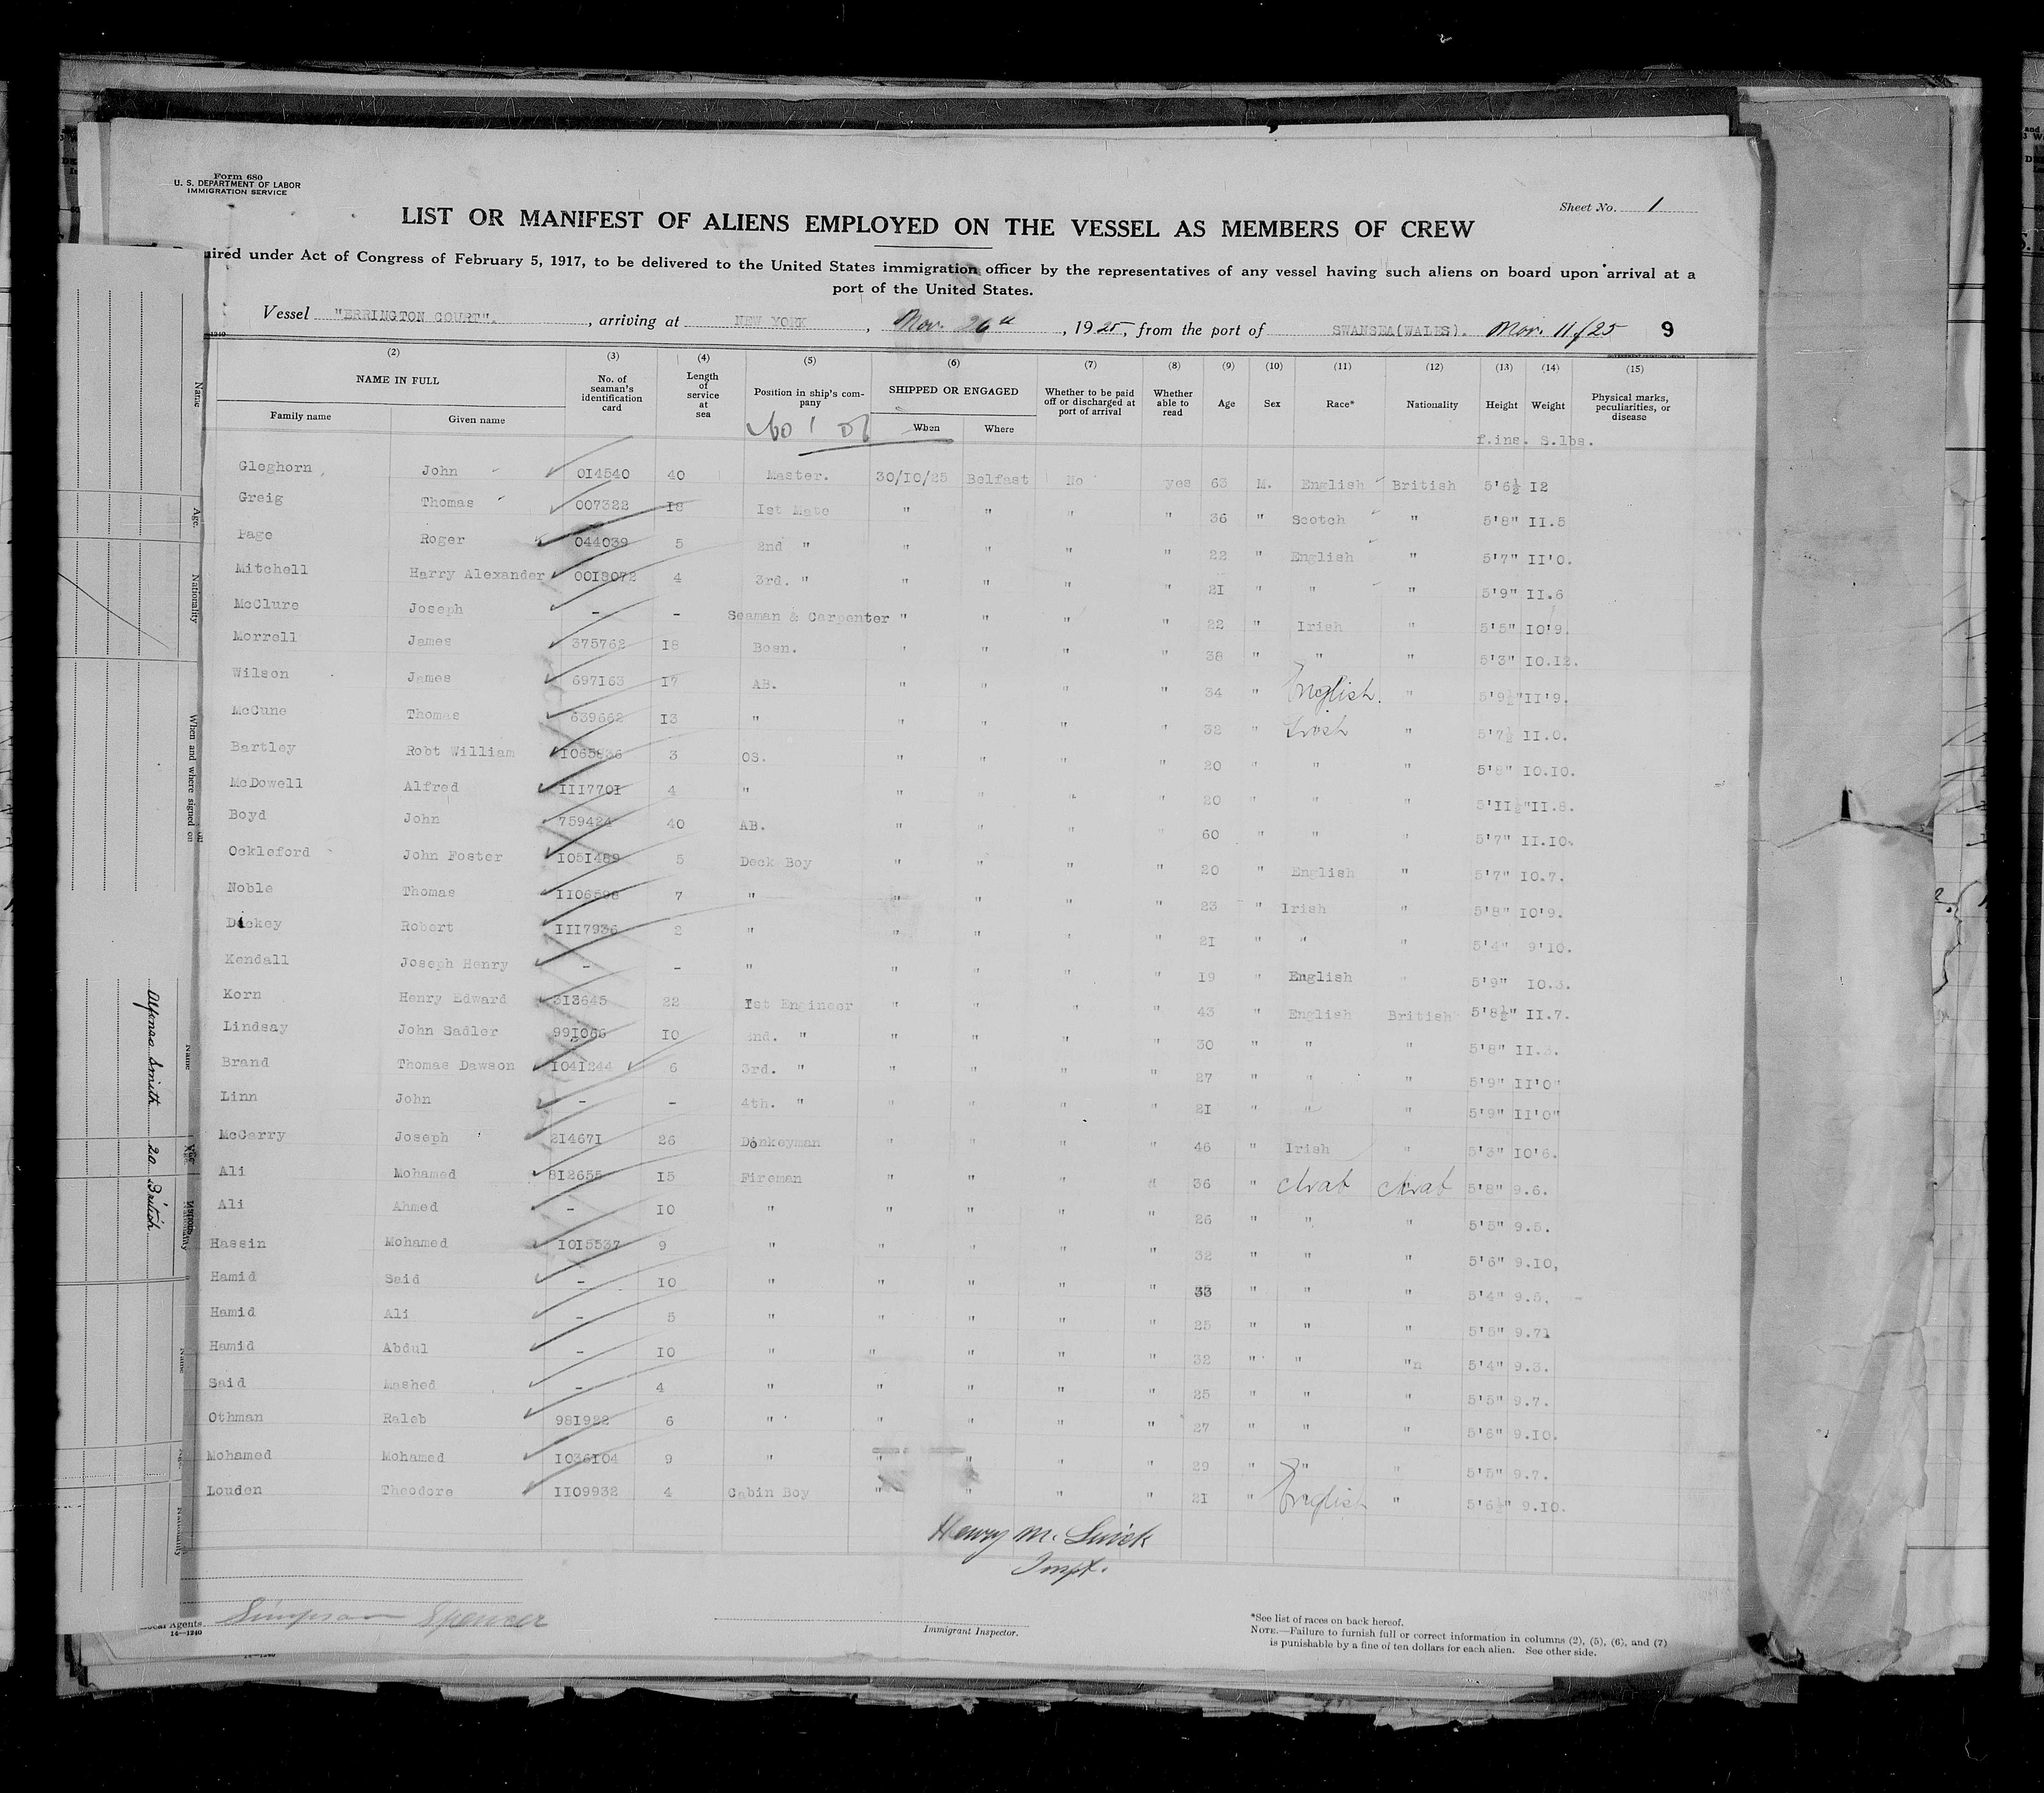 Form 680
U. S. DEPARTMENT OF LABOR
IMMIGRATION SERVICE
Sheet No. 1
LIST OR MANIFEST OF ALIENS EMPLOYED ON THE VESSEL AS MEMBERS OF CREW
uired under Act of Congress of February 5, 1917, to be delivered to the United States immigration officer by the representatives of any vessel having such aliens on board upon arrival at a
port of the United States.
Vessel "ERRINGTON COURT"., arriving at NEW YORK, Nov. 26th, 1925, from the port of SWANSEA(WALES). Nov. 11/25 9
(2) (3) (4) (5) (6) (7) (8) (9) (10) (11) (12) (13) (14) (15)
NAME IN FULL No. of seaman's identification card Length of service at sea Position in ship's company SHIPPED OR ENGAGED Whether to be paid off or discharged at port of arrival Whether able to read Age Sex Race* Nationality Height Weight Physical marks, peculiarities, or disease
Family name Given name When Where
f.ins. S.lbs.
Gleghorn John 014540 40 Master. 30/10/25 Belfast No yes 63 M. English British 5'6½ 12
Greig Thomas 007322 18 1st Mate " " " " 36 " Scotch " 5'8" 11.5
Page Roger 044039 5 2nd " " " " " 22 " English " 5'7" 11'0.
Mitchell Harry Alexander 0018072 4 3rd. " " " " " 21 " " " 5'9" 11.6
McClure Joseph - - Seaman & Carpenter " " " " 22 " Irish " 5'5" 10'9.
Morrell James 375762 18 Bosn. " " " " 38 " " " 5'3" 10.12.
Wilson James 697163 17 AB. " " " " 34 " English. " 5'9½" 11'9.
McCune Thomas 639662 13 " " " " " 32 " Irish " 5'7½ 11.0.
Bartley Robt William 1065836 3 OS. " " " " 20 " " " 5'8" 10.10.
McDowell Alfred 1117701 4 " " " " " 20 " " " 5'11½" 11.8.
Boyd John 759424 40 AB. " " " 60 " " " 5'7" 11.10.
Ockleford John Foster 1051489 5 Deck Boy " " " " 20 " English " 5'7" 10.7.
Noble Thomas 1106598 7 " " " " " 23 " Irish " 5'8" 10'9.
Dickey Robert 1117936 2 " " " " " 21 " " " 5'4" 9'10.
Kendall Joseph Henry - - " " " " " 19 " English " 5'9" 10.3.
Korn Henry Edward 313645 22 1st Engineer " " " " 43 " English British 5'8½" 11.7.
Lindsay John Sadler 991066 10 2nd. " " " " " 30 " " " 5'8" 11.3.
Brand Thomas Dawson 1041244 6 3rd. " " " " " 27 " " " 5'9" 11'0"
Linn John - - 4th. " " " " " 21 " " " 5'9" 11'0"
McGarry Joseph 214671 26 Donkeyman " " " " 46 " Irish " 5'3" 10'6.
Ali Mohamed 812655 15 Fireman " " " " 36 " Arab Arab 5'8" 9.6.
Ali Ahmed - 10 " " " " " 26 " " " 5'5" 9.5.
Hassin Mohamed 1015537 9 " " " " " 32 " " " 5'6" 9.10,
Hamid Said - 10 " " " " " 33 " " " 5'4" 9.5.
Hamid Ali - 5 " " " " " 25 " " " 5'5" 9.71
Hamid Abdul - 10 " " " " " 32 " " "n 5'4" 9.3.
Said Mashed - 4 " " " " " 25 " " " 5'5" 9.7.
Othman Raleb 981922 6 " " " " " 27 " " " 5'6" 9.10.
Mohamed Mohamed 1036104 9 " " " " " 29 " " " 5'5" 9.7.
Louden Theodore 1109932 4 Cabin Boy " " " " 21 " English " 5'6½" 9.10.
Henry M.
Inspt.
Simpson Spencer
Agents
14—1240
Immigrant Inspector.
*See list of races on back hereof.
NOTE.—Failure to furnish full or correct information in columns (2), (5), (6), and (7)
is punishable by a fine of ten dollars for each alien. See other side.
Name
Age
Nationality
When and where signed on
Alfonso Smith 20 British
Name
Nationality
Name
Nationality